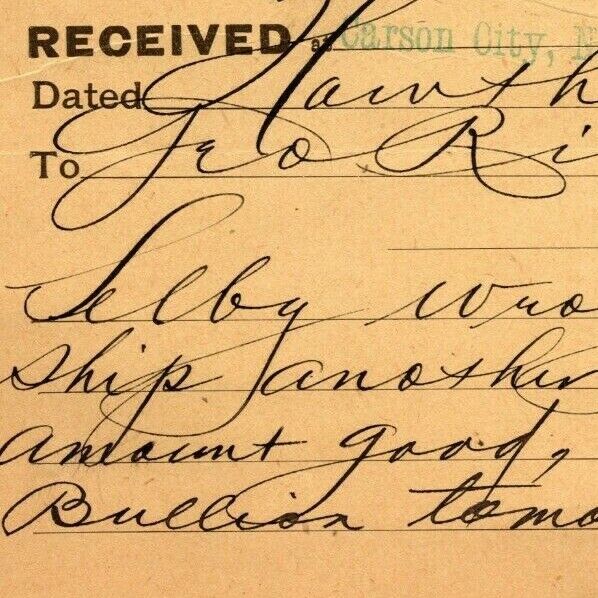 RECEIVED at Carson City, N
Dated Hawth
To Geo Ri
Selby wro
ship another
amount good,
Bullion tomo